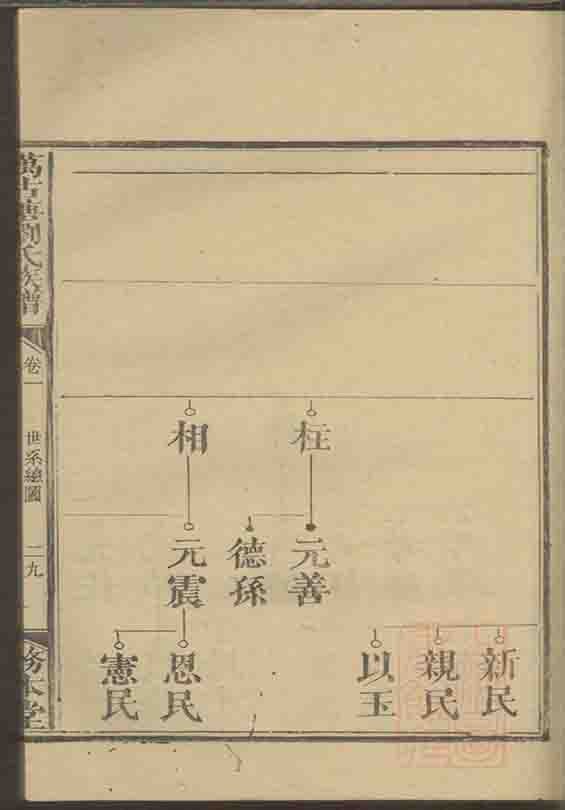 柱
相
元善
德孫
元震
新民
親民
以玉
恩民
憲民
劉氏族譜
卷一
世系總圖
二九
務本堂